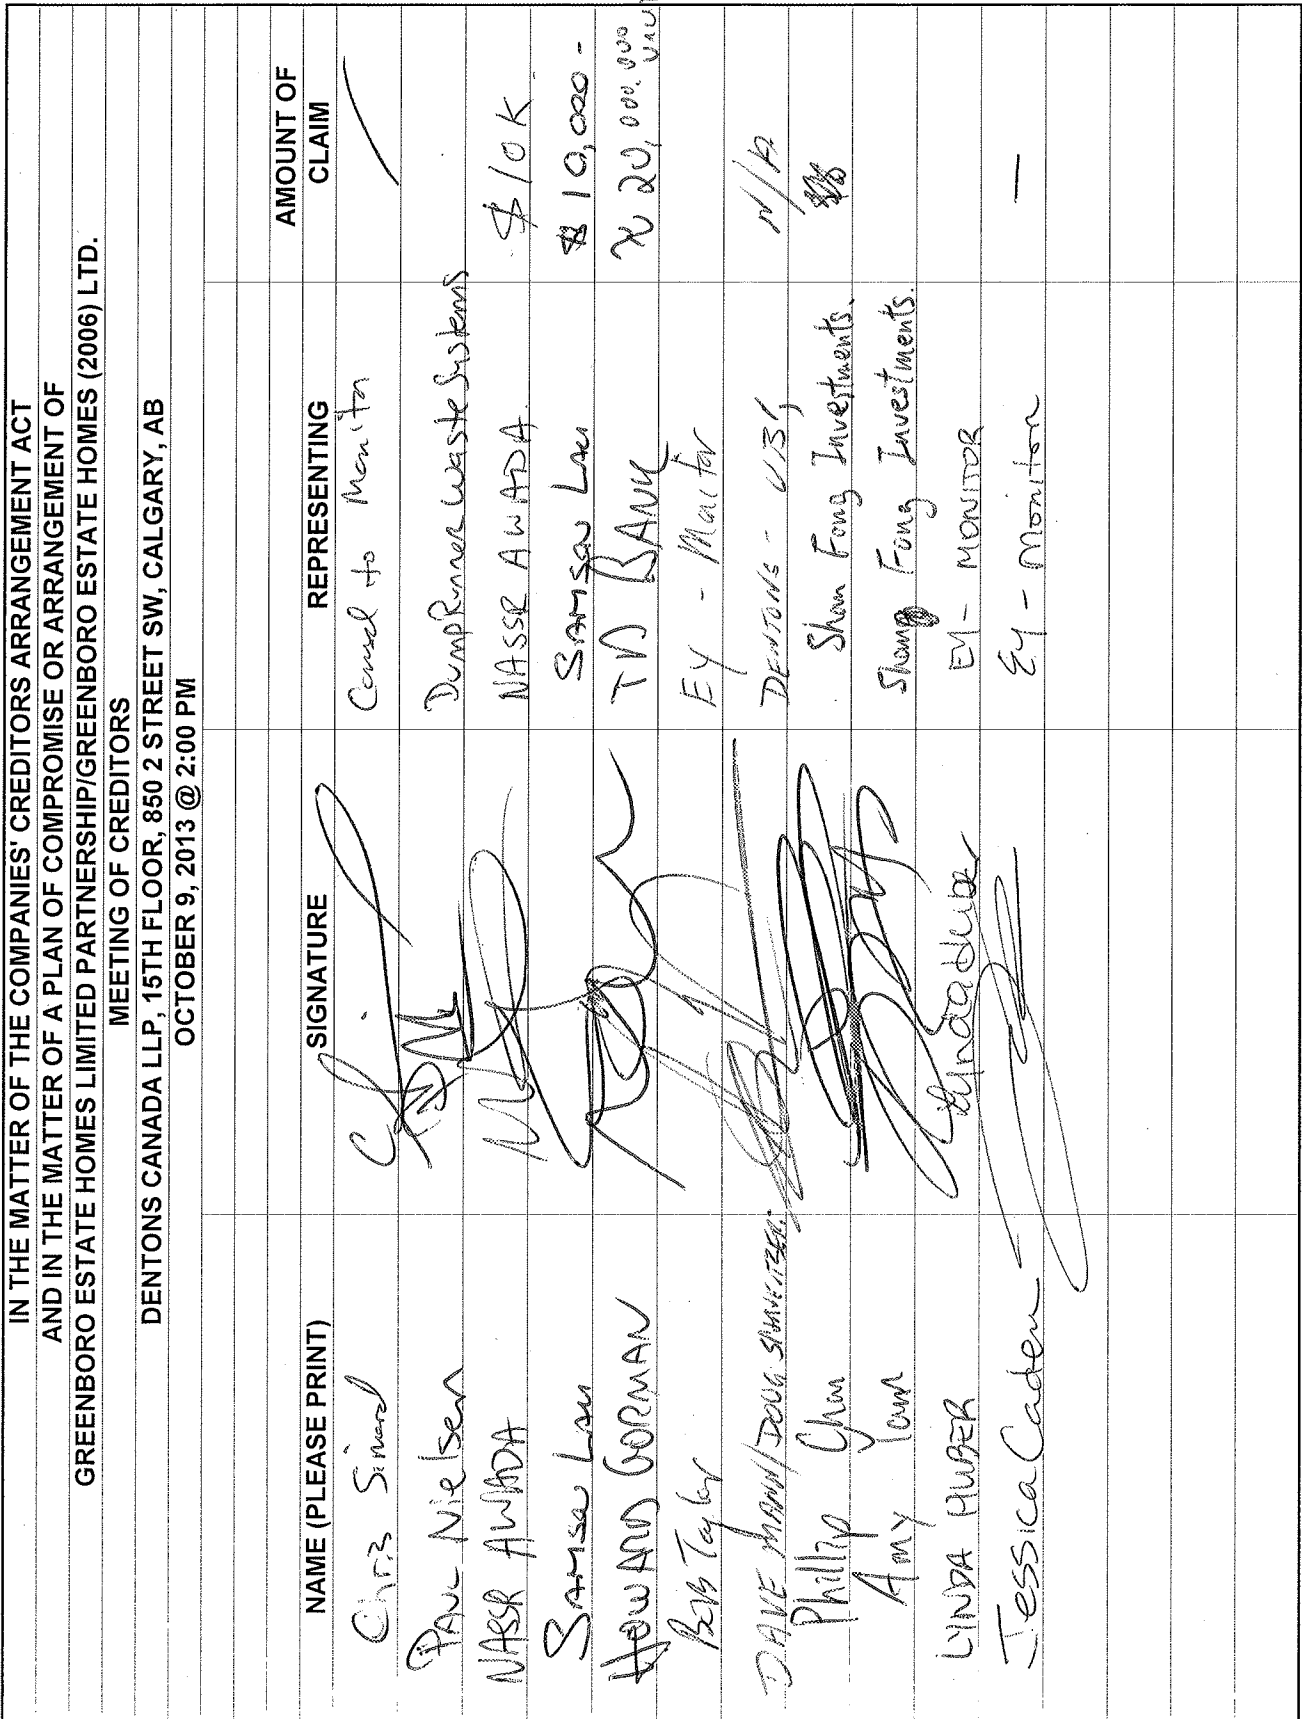 IN THE MATTER OF THE COMPANIES' CREDITORS ARRANGEMENT ACT
AND IN THE MATTER OF A PLAN OF COMPROMISE OR ARRANGEMENT OF
GREENBORO ESTATE HOMES LIMITED PARTNERSHIP/GREENBORO ESTATE HOMES (2006) LTD.
MEETING OF CREDITORS
DENTONS CANADA LLP, 15TH FLOOR, 850 2 STREET SW, CALGARY, AB
OCTOBER 9, 2013 @ 2:00 PM
NAME (PLEASE PRINT) SIGNATURE REPRESENTING AMOUNT OF CLAIM
Chris Simard Counsel to Monitor
PAUL Nielsen DumpRunner Waste Systems
NASSR AWADA NASSR AWADA $10K
SAMSON LAU SAMSON LAU $10,000-
HOWARD GORMAN TD BANK 20,000,000
Bob Taylor EY - Monitor
DAVE MANN/DOUG DENTONS - N/A
Phillip Chan Shan Fong Investments.
Amy Lam Shang Fong Investments.
LYNDA HUBER Lynda Huber EY - MONITOR
Jessica Caden EY - Monitor —